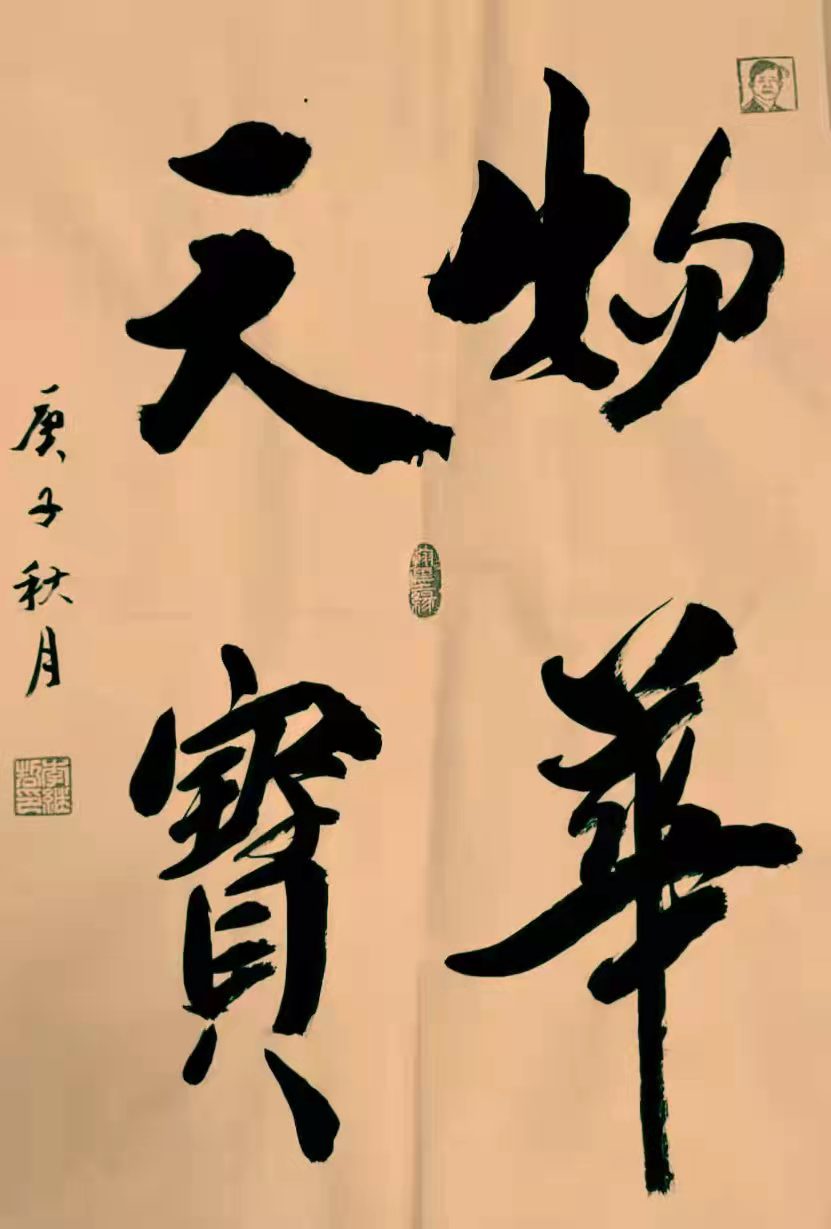 物華
天寶
庚子秋月